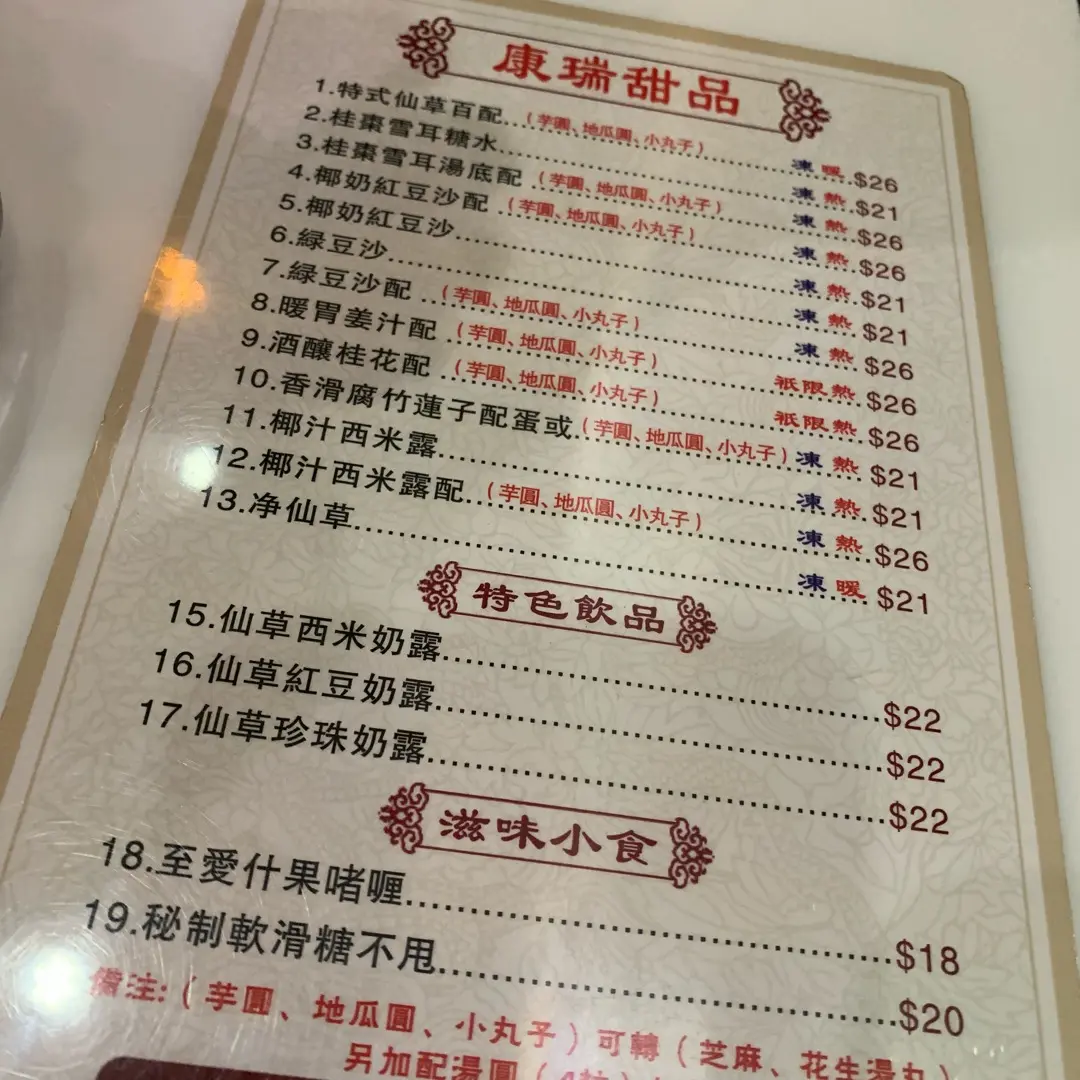 康瑞甜品
1.特式仙草百配...(芋圓、地瓜圓、小丸子)......凍 暖.$26
2.桂棗雪耳糖水......凍 熱.$21
3.桂棗雪耳湯底配(芋圓、地瓜圓、小丸子)......凍 熱.$26
4.椰奶紅豆沙配(芋圓、地瓜圓、小丸子)......凍 熱.$26
5.椰奶紅豆沙......凍 熱.$21
6.綠豆沙......凍 熱.$21
7.綠豆沙配...(芋圓、地瓜圓、小丸子)......凍 熱.$26
8.暖胃姜汁配(芋圓、地瓜圓、小丸子)......衹限熱.$26
9.酒釀桂花配(芋圓、地瓜圓、小丸子)......衹限熱.$26
10.香滑腐竹蓮子配蛋或...(芋圓、地瓜圓、小丸子)凍 熱.$21
11.椰汁西米露......凍 熱.$21
12.椰汁西米露配...(芋圓、地瓜圓、小丸子)......凍 熱.$26
13.净仙草......凍 暖 $21
特色飲品
15.仙草西米奶露......$22
16.仙草紅豆奶露......$22
17.仙草珍珠奶露......$22
滋味小食
18.至愛什果啫喱......$18
19.秘制軟滑糖不甩......$20
備注:(芋圓、地瓜圓、小丸子)可轉(芝麻、花生湯丸)
另加配湯圓